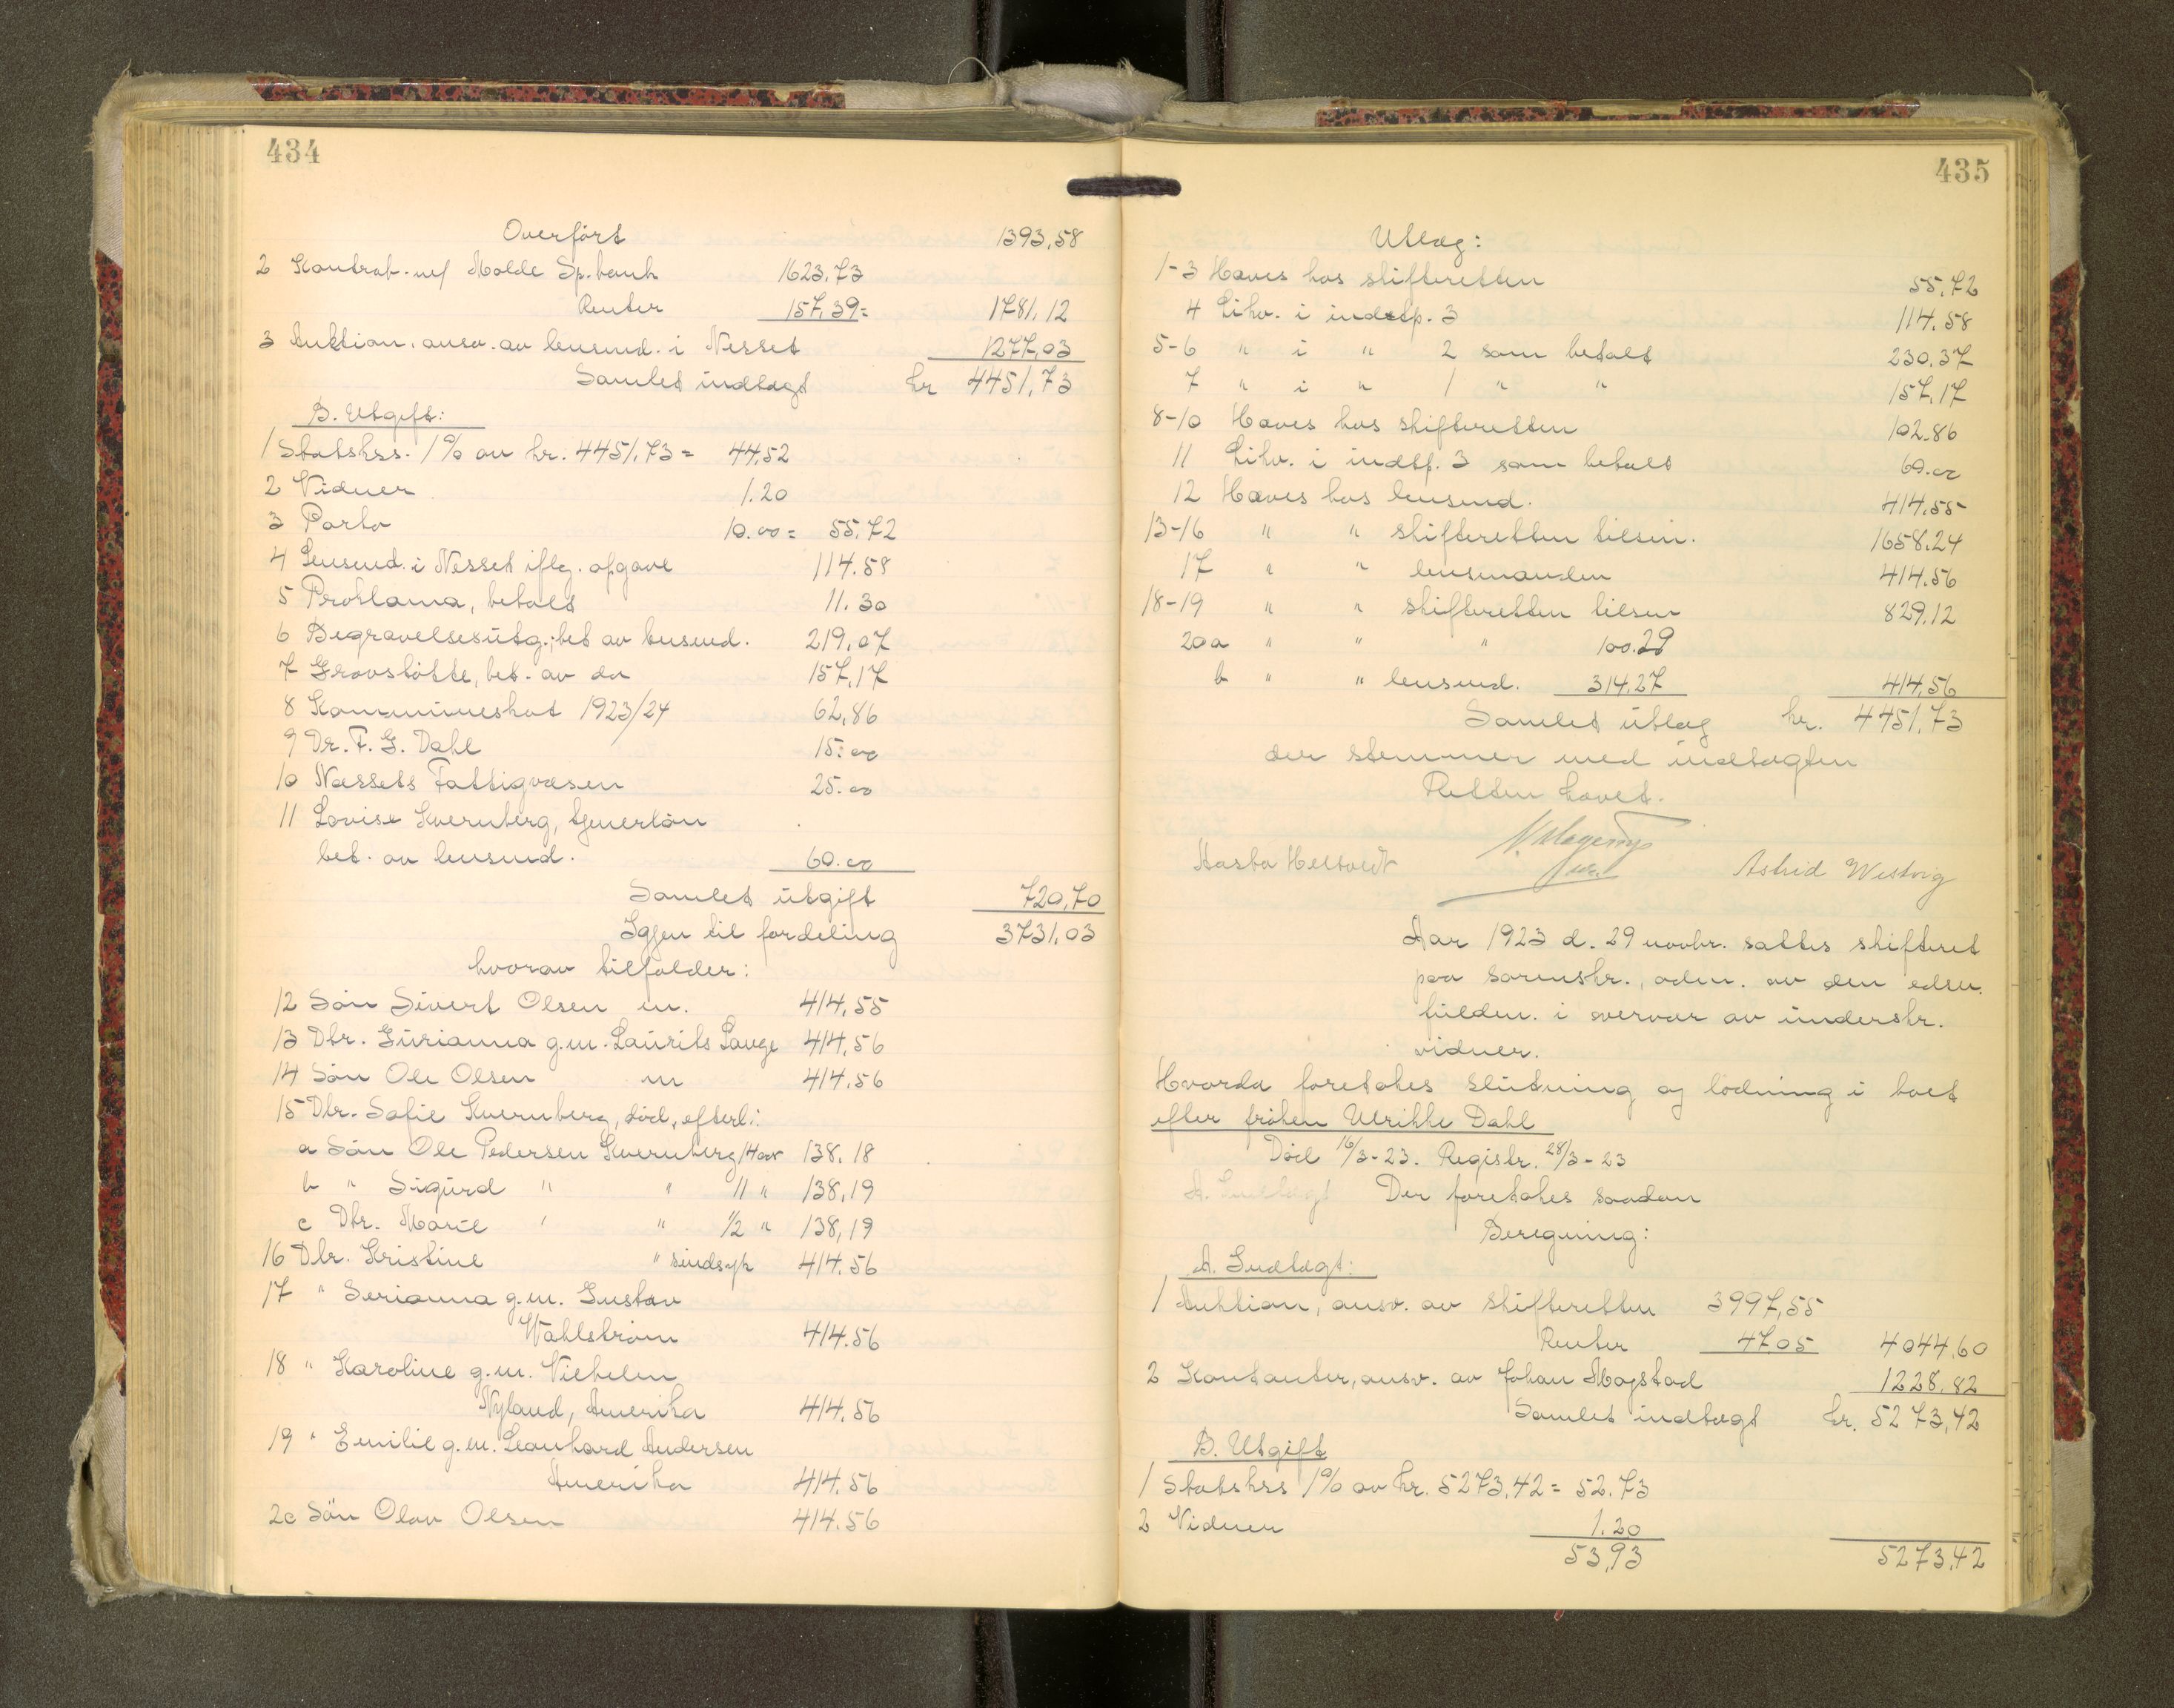 434
Overført 1393,58
2 Kontrab. m/ Molde Sp.bank 1623.73
Renter 157,39= 1781,12
3 Auktion. ansv. av lensmd. i Nesset 1277,03
Samlet indtægt kr 4451,73
B. Utgift:
1 Statskss. 1% av kr. 4451,73 = 44,52
2 Vidner 1.20
3 Porto 10.00 = 55,72
4 Lensmd. i Nesset iflg. opgave 114.58
5 Proklama, betalt 11.30
6 Begravelsesutg.; bet av lensmd. 219,07
7 Gravstøtte, bet. av do 157,17
8 Kommuneskat 1923/24 62,86
9 Dr. F. G. Dahl 15.00
10 Næssets Fattigvæsen 25.00
11 Lovise Kvernberg, tjenerløn
bet. av lensmd. 60.00
Samlet utgift 720,70
Igjen til fordeling 3731,03
hvorav tilfalder:
12 Søn Sivert Olsen m. 414,55
13 Dtr. Gurianna g.m. Laurits Lange 414,56
14 Søn Ole Olsen m 414.56
15 Dtr. Sofie Kvernberg, død, efterl.:
a Søn Ole Pedersen Kvernberg 14 aar 138,18
b " Sigurd " " 11 " 138,19
c Dtr. Marie " " 1/2 " 138,19
16 Dtr. Kristine " sindsyk 414.56
17 " Serianna g.m. Gustav
Wahlstrøm 414.56
18 " Karoline g.m. Vilhelm
Nyland, Amerika 414.56
19 " Emilie g.m. Leonhard Andersen
Amerika 414.56
20 Søn Olav Olsen 414.56
435
Utlæg:
1-3 Haves hos skifteretten 55,72
4 Likv. i indtp. 3 114.58
5-6 " i " 2 som betalt 230.37
7 " i " 1 " " 157,17
8-10 Haves hos skifteretten 102.86
11 Likv. i indtp. 3 som betalt 60.00
12 Haves hos lensmd. 414.55
13-16 " " skifteretten tilsm. 1658.24
17 " " lensmanden 414.56
18-19 " " skifteretten tilsm 829,12
20a " " " 100.29
b " " lensmd. 314,27 414,56
Samlet utlæg kr. 4451,73
der stemmer med indtægten
Retten hævet.
Aasta Astrid Westvig
Aar 1923 d. 29 novbr. sattes skifteret
paa sorenskr., adm. av den edsv.
fuldm. i overvær av underskr.
vidner.
Hvorda foretokes slutning og lodning i boet
efter frøken Ulrikke Dahl
Død 16/3-23. Registr. 28/3-23
A. Indtægt Der foretokes saadan
Beregning:
A. Indtægt:
1 Auktion, ansv. av skifteretten 3997,55
Renter 47.05 4044,60
2 Kontanter, ansv. av Johan Magstad 1228.82
Samlet indtægt kr. 5273,42
B. Utgift
1 Statskss 1% av kr. 5273,42 = 52.73
2 Vidner 1.20
53,93 5273,42